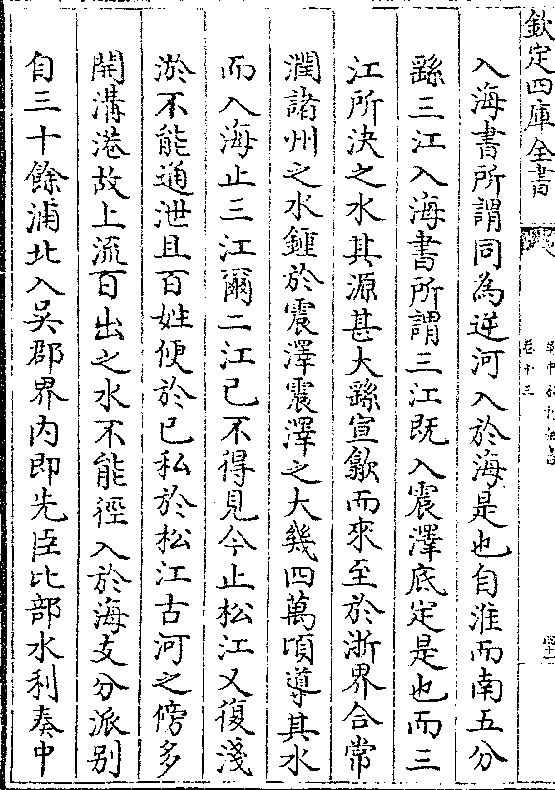 欽定四庫全書
卷十三
入海書所謂同為逆河入於海是也自淮而南五分
繇三江入海書所謂三江既入震澤底定是也而三
江所決之水其源甚大繇宣歙而來至於浙界合常
潤諸州之水鍾於震澤震澤之大幾四萬頃導其水
而入海止三江爾二江已不得見今止松江又復淺
淤不能通泄且百姓便於已私於松江古河之傍多
開溝港故上流百出之水不能徑入於海支分派别
自三十餘浦北入吳郡界内即先臣比部水利奏中